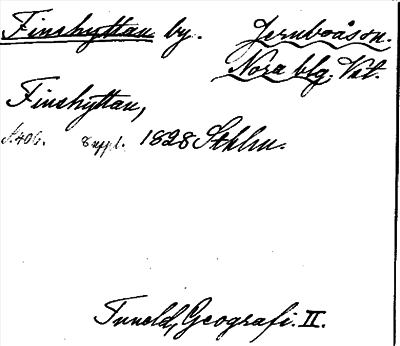 Finshyttan by. Järnboåson.
Nora blg. Vstl.
Finshyttan,
s. 406. Suppl. 1828 Sthlm.
Tuneld, Geografi. II.